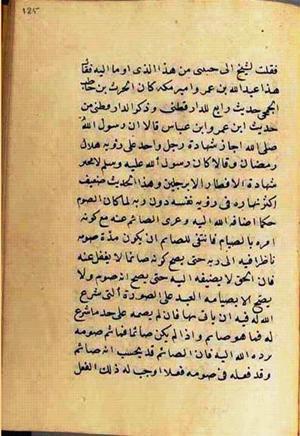 ١٢٥
فقلت لشيخ الى جنبى من هذا الذى اوما اليه فقال
هذا عبدالله بن عمر وامير مكه كان الحرث بن حاطب
الجمحى حديث رابع للدارقطنى وذكر الدارقطنى من
حديث ابن عمر وابن عباس قالا ان رسول الله
صلى الله اجاز شهادة رجل واحد على رؤية هلال
رمضان وقالا كان رسول الله عليه وسلم لا يجيز
شهادة الافطار الا برجلين وهذا الحديث ضعيف
نهاره فى رؤية نفسه دون ربه لما كان الصوم
حكما اضافه الله اليه وعرى الصائم عنه مع كونه
امره بالصيام فانتفى للصائم ان يكون مدة صومه
ناظرا فيه الى ربه حتى يصح كونه صائما لا يغفل عنه
فان الحق لا يضيفه اليه حتى يصح انه صوم ولا
يصح الا بصيامه العبد على الصورة التى شرع
الله له فيه ان ياتى بها فان لم يصمه على حد ما شرع
له فما هو صائم واذا لم يكن صائما فما ثم صومه
يرده الله اليه فان الصائم قد يحسب انه صائم
وقد فعله فى صومه فعلا اوجب له ذلك الفعل